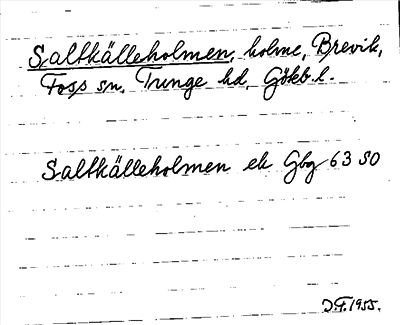 Saltkälleholmen, holme, Brevik,
Foss sn, Tunge hd, Gökb. l.
Saltkälleholmen ek Gbg 63 SO
J.F. 1955.